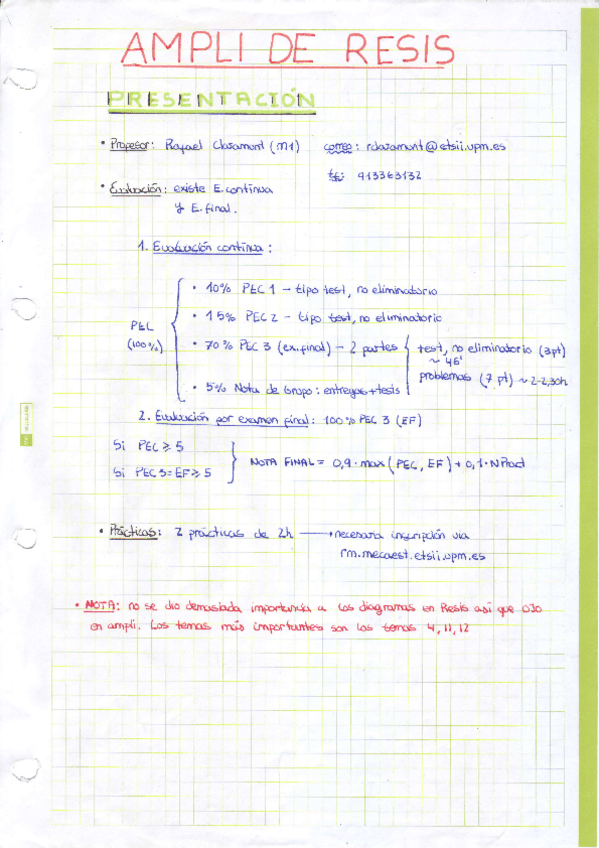 AMPLI DE RESIS
PRESENTACIÓN
• Profesor: Rafael Claramunt (M1) correo: rclaramunt@etsii.upm.es
tf: 913363132
• Evaluación: existe E. continua
y E. final.
1. Evaluación continua:
• 10% PEC 1 – tipo test, no eliminatorio
• 15% PEC 2 – tipo test, no eliminatorio
PEC
(100%)
• 70% PEC 3 (ex. final) – 2 partes
test, no eliminatorio (3pt)
~ 45'
problemas (7 pt) ~ 2-2,30h
• 5% Nota de Grupo: entregas + tests
2. Evaluación por examen final: 100% PEC 3 (EF)
Si PEC ≥ 5
Si PEC 3 = EF ≥ 5
NOTA FINAL = 0,9 · max (PEC, EF) + 0,1 · NPract
• Prácticas: 2 prácticas de 2h → necesaria inscripción via
rm.mecaest.etsii.upm.es
• NOTA: no se dio demasiada importancia a los diagramas en Resis asi que OJO
en ampli. Los temas más importantes son los temas 4, 11, 12